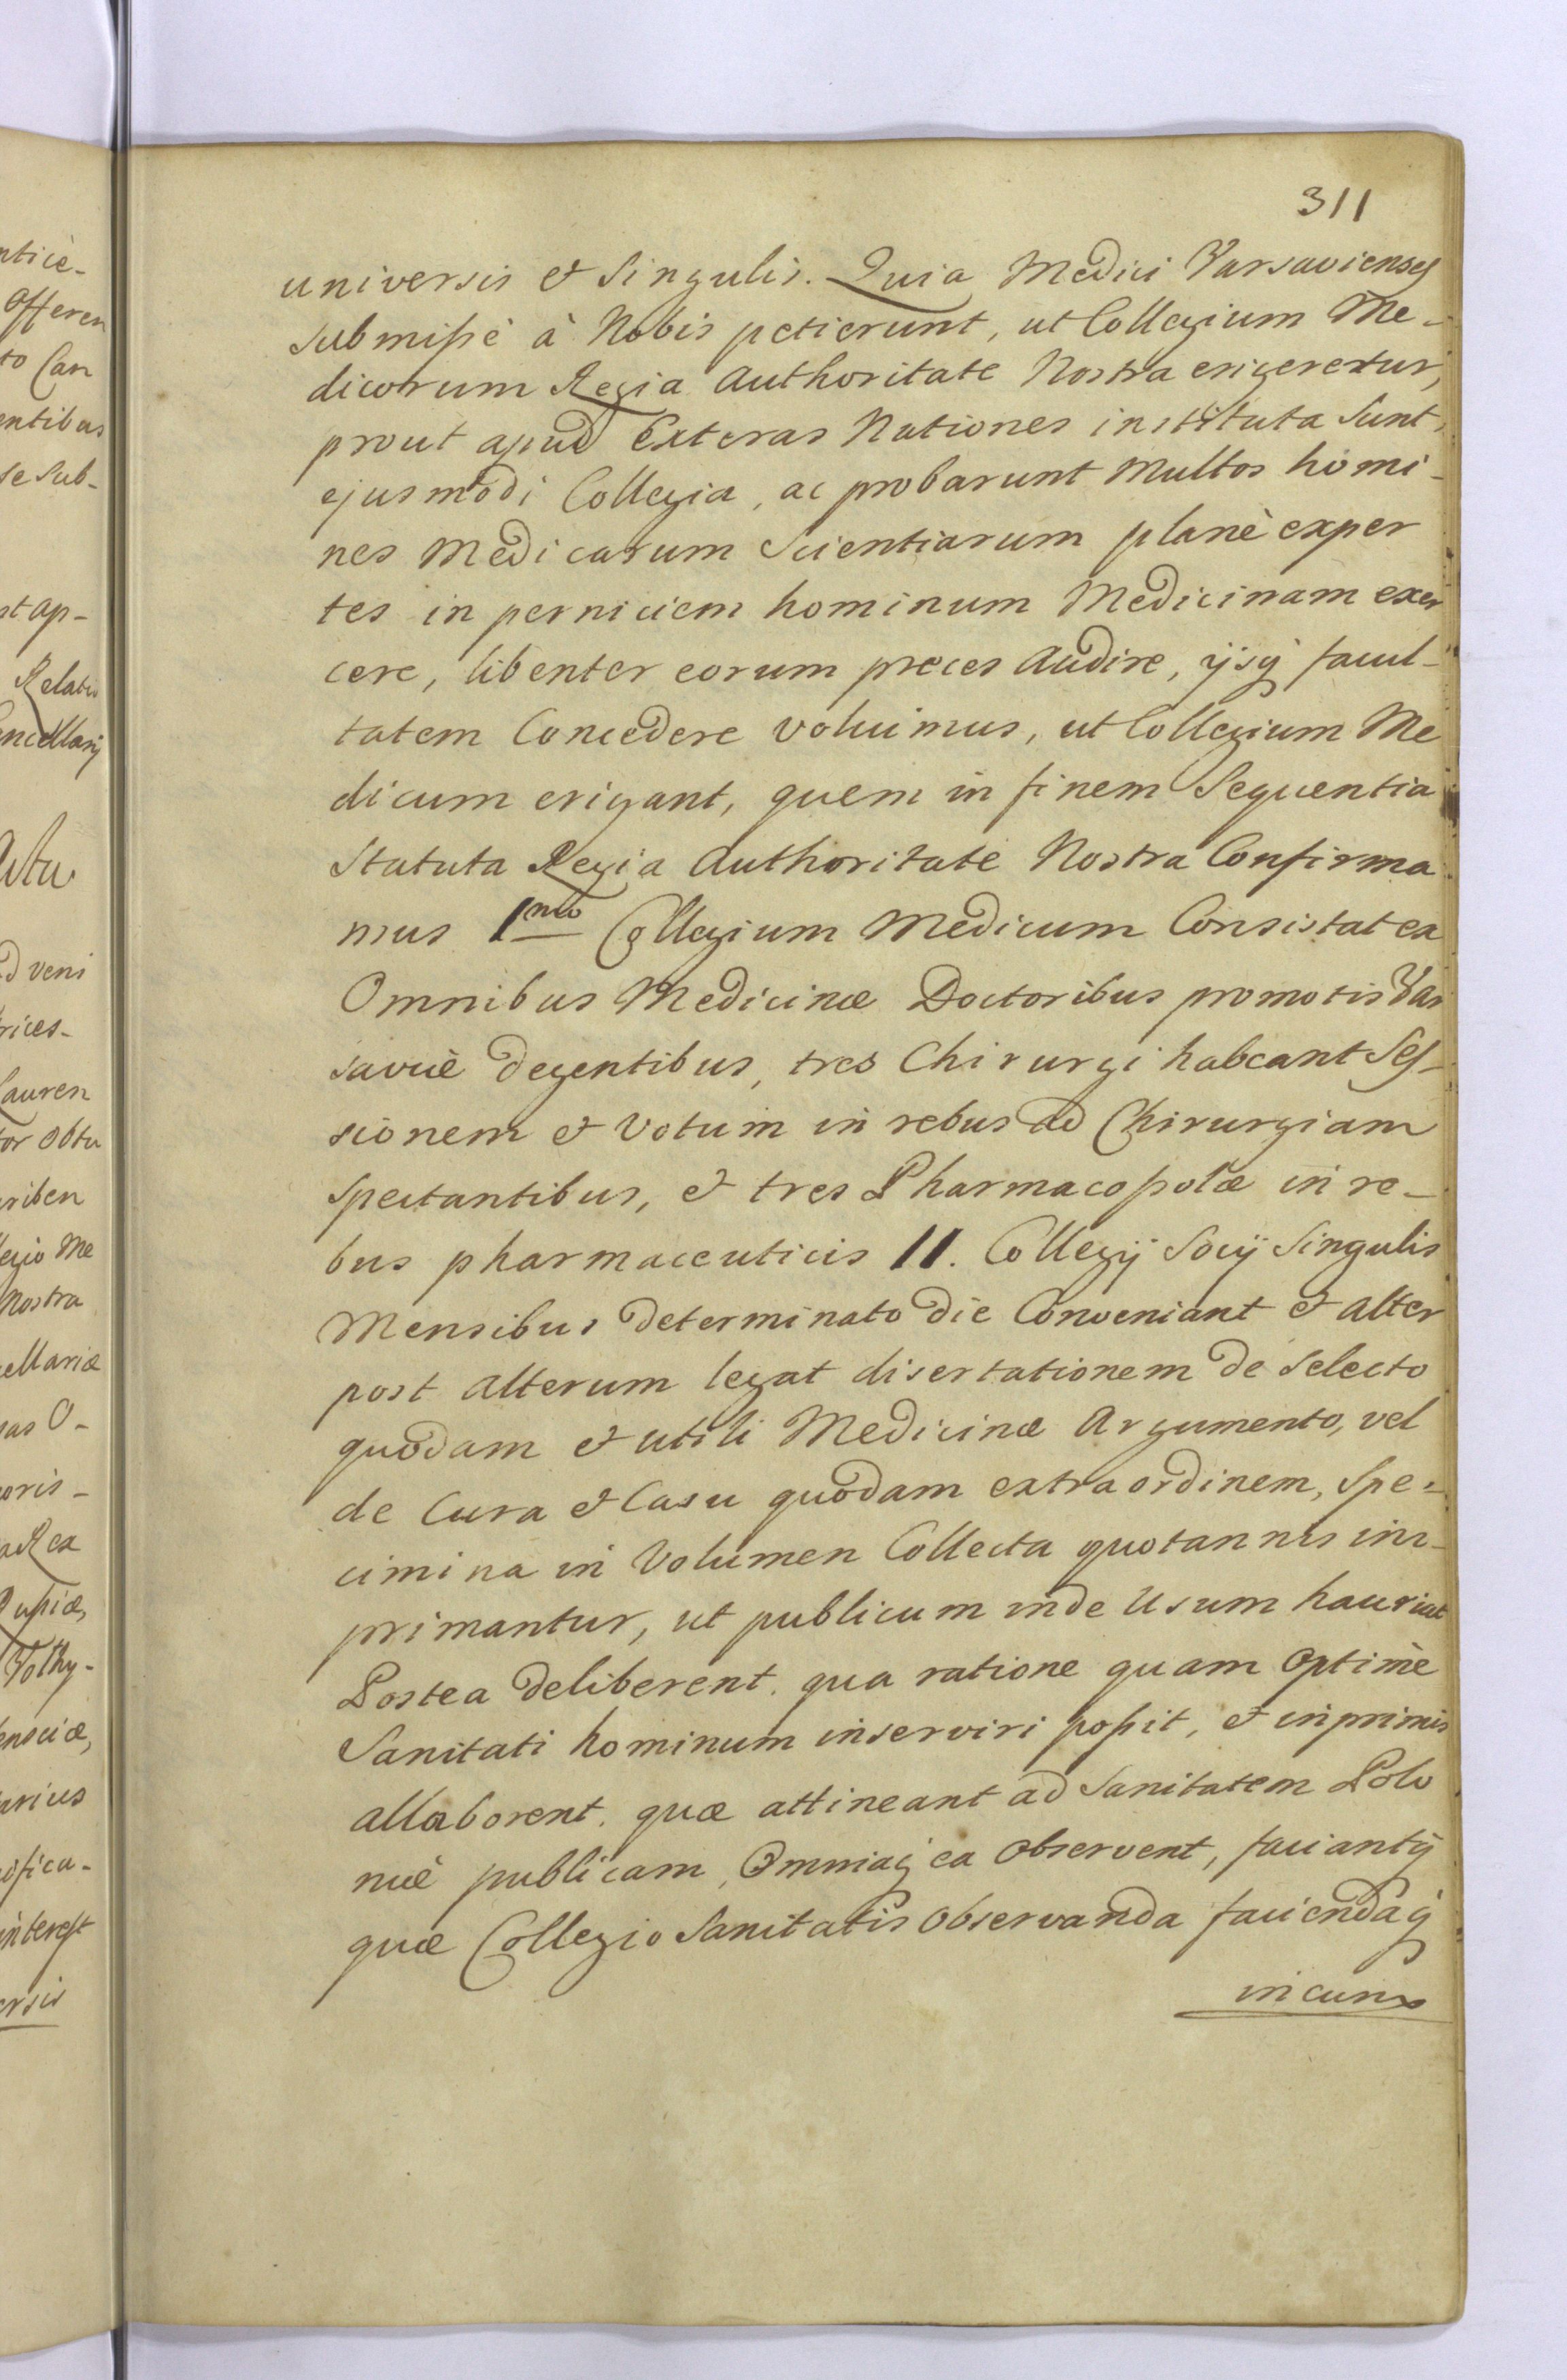 311
universis et Singulis. Quia Medici Varsavienses
submissè à Nobis petierunt, ut Collegium Me-
dicorum Regia Authoritate Nostra erigeretur,
prout apud Exteras Nationes instituta Sunt,
ejusmodi Collegia, ac probarunt Multos homi-
nes Medicarum Scientiarum planè exper
tes in perniciem hominum Medicinam exer
cere, libenter eorum preces Audire, ijsq facul-
tatem Concedere voluimus, ut Collegium Me
dicum erigant, quem in finem Sequentia
Statuta Regia Authoritate Nostra Confirma
mus 1mo Collegium Medicum Consistat ex
Omnibus Medicinæ Doctoribus promotis Var
saviè degentibus, tres Chirurgi habeant Ses-
sionem et Votum in rebus ad Chirurgiam
Spectantibus, et tres Pharmacopolæ in re-
bus pharmaceuticis II. Collegij Socij Singulis
Mensibus determinato die Conveniant et alter
post alterum legat disertationem de Selecto
quodam et utili Medicinæ Argumento, vel
de Cura et Casu quodam extraordinem, Spe-
cimina in Volumen Collecta quotannis im-
primantur, ut publicum inde Usum hauriat
Postea deliberent. qua ratione quam Optimè
Sanitati hominum inserviri possit, et inprimis
allaborent. quæ attineant ad Sanitatem Polo
niæ publicam, Omniaq ea Observent, faciantq
quæ Collegio Sanitatis Observanda faciendaq
incum
ntiè-
Offeren
to Can
entibus
se Sub-
st ap-
Relatio
ncellarij
Actu
d veni
rices-
Lauren
tor Obtu
riben
legio Me
Nostra
cellariæ
nas O-
oris-
Rex
Russiæ,
Volhy-
ensciæ,
arius
ifica-
interest
ersis